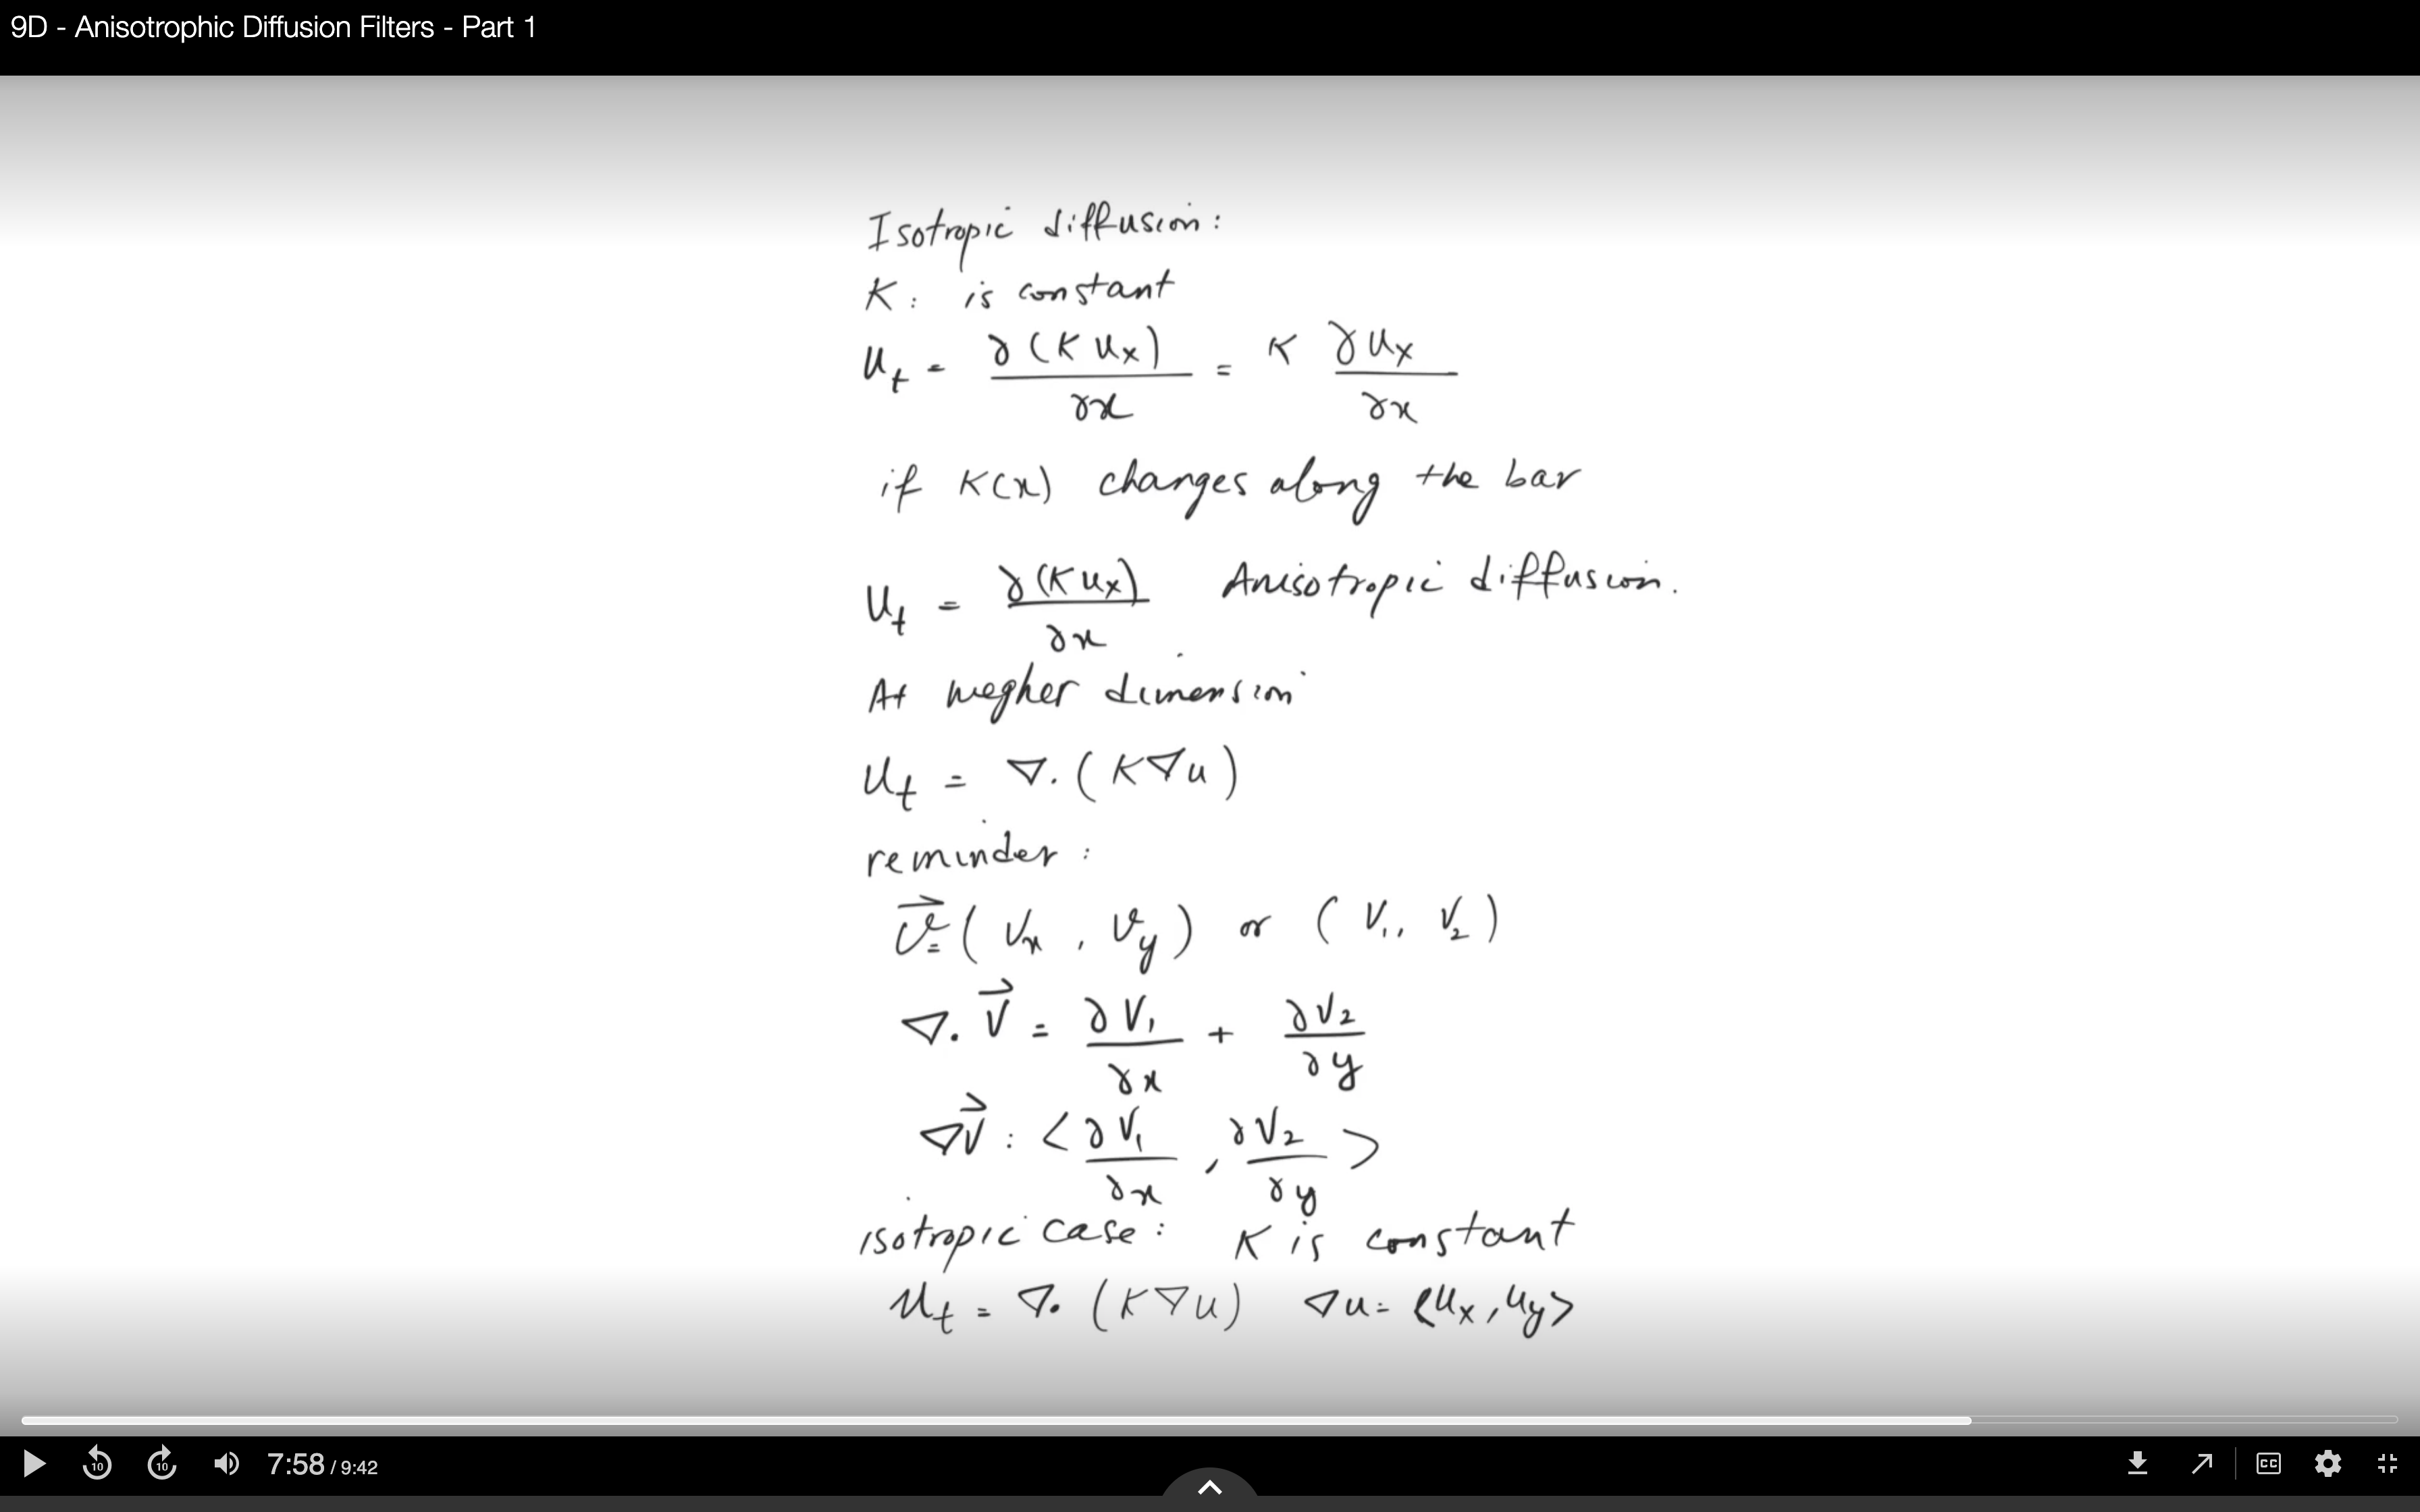 9D - Anisotrophic Diffusion Filters - Part 1
Isotropic diffusion:
K: is constant
u_t = ∂(K u_x)/∂x = K ∂u_x/∂x
if K(x) changes along the bar
u_t = ∂(K u_x)/∂x Anisotropic diffusion.
At heigher dimension
u_t = ∇.(K∇u)
reminder:
v⃗=(v_x, v_y) or (V_1, V_2)
∇.V⃗ = ∂V_1/∂x + ∂V_2/∂y
∇V⃗: <∂V_1/∂x, ∂V_2/∂y>
isotropic case: K is constant
u_t = ∇.(K∇u) ∇u= <u_x, u_y>
10 10 7:58 / 9:42 CC